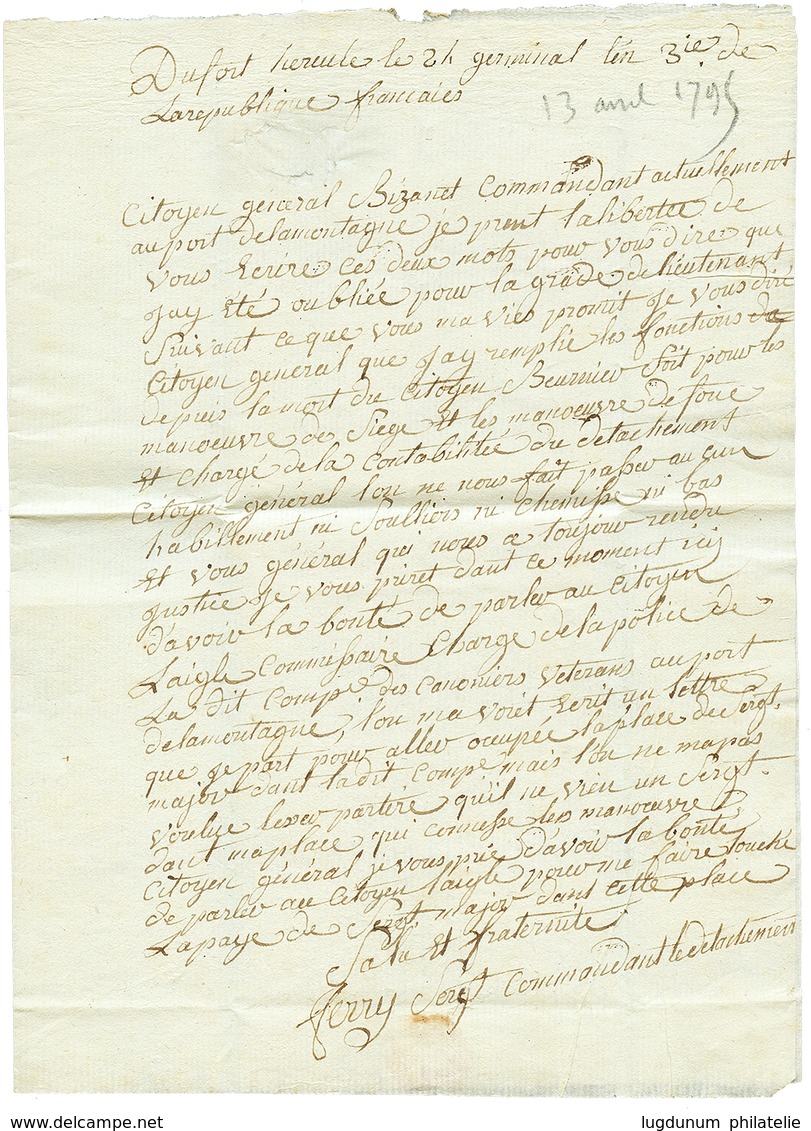 Du fort hercule le 24 germinal l'én 3ie de
La republique francaies
13 avril 1795
Citoyen general Bizanet Commandant actuellement
au port delamontagne je prent la libertee de
Vous Ecrire ces deux mots pour vous dire que
Jay Eté oubliée pour la grade de lieutenant
Suivant ce que vous ma vies promit Je vous dire
Citoyen general que Jay remplie les fonctions de
depuis la mort du Citoyen Beurnier soit pour les
manoeuvre de Siege et les manoeuvre de foue
et chargé de la contabilitée du detachement
Citoyen général l'on ne nous fait passer au cun
habillement ni Soulliers ni chemisse ni bas
Et vous général qui nous a toujour rendu
Justice Je vous priret dant ce moment icy
d'avoir la bonté de parler au citoyen
Laigle Commissaire Chargé de la police de
La dit Compe des canoniers veterans au port
delamontagne, l'on ma voret Ecrit un lettre
que je part pour aller occupée la place de Sergt.
major dant la dit Compe mais l'on ne ma pas
voulue lesser partire qu'il ne vien un Sergt.
dant ma place qui connesse les manoeuvre
Citoyen général je vous prie d'avoir la bonté
de parler au Citoyen laigle pour me faire touché
La paye de Sergt major dant cette place
Salu et fraternité
ferry Sergt Commandant le detachement
lugdunum philatelie